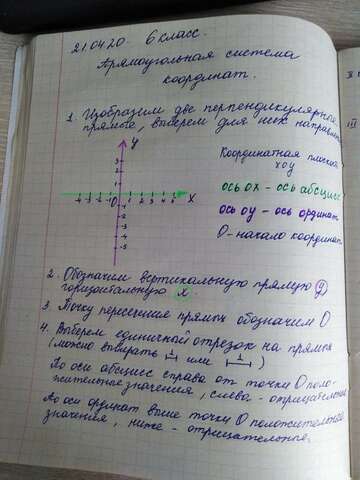 21.04.20. 6 класс.
Прямоугольная система
координат.
1. Изобразим две перпендикулярные
прямые, выберем для них направление
y
Координатная плоскость
xoy
3
2
1
-4 -3 -2 -1 0 1 2 3 4 5 x
-1
-2
-3
-4
-5
ось ox - ось абсцисс
ось oy - ось ординат
O - начало координат
2. Обозначим вертикальную прямую (y)
горизонтальную x
3. Точку пересечения прямых обозначим O
4. Выберем единичный отрезок на прямых
(можно выбирать 1 или 1)
По оси абсцисс справа от точки O поло-
жительные значения, слева - отрицательные
По оси ординат выше точки O положительные
значения, ниже - отрицательные.
II
III